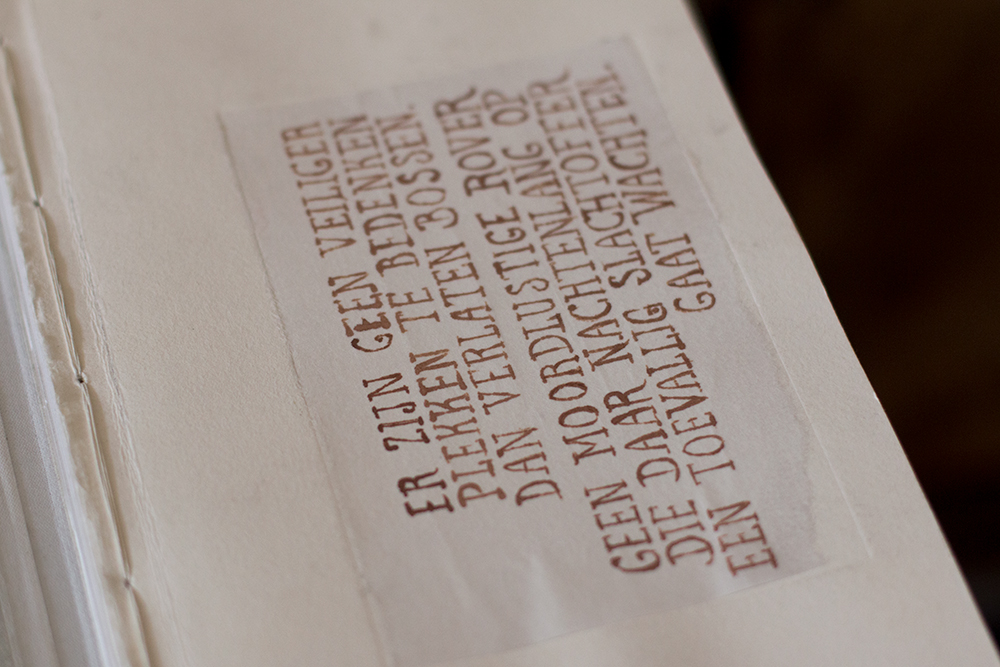 ER ZIJN GEEN VEILIGER
PLEKKEN TE BEDENKEN
DAN VERLATEN BOSSEN.
GEEN MOORDLUSTIGE ROVER
DIE DAAR NACHTENLANG OP
EEN TOEVALLIG SLACHTOFFER
GAAT WACHTEN.